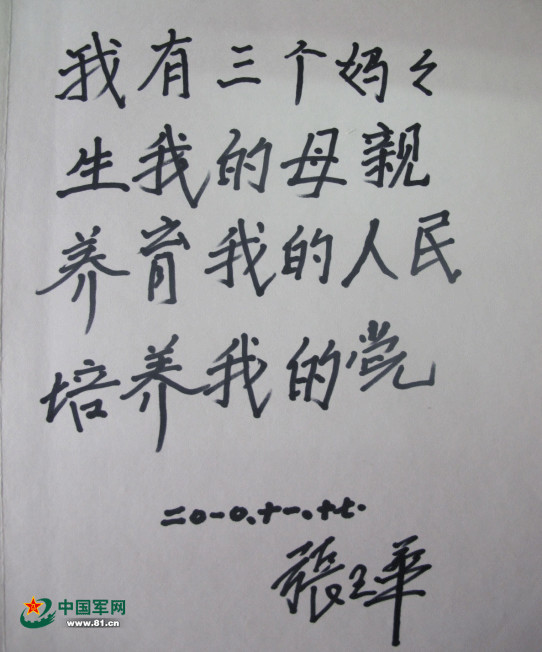 我有三个妈々
生我的母亲
养育我的人民
培养我的党
二〇一〇.十一.十七.
張玉華
中国军网
www.81.cn